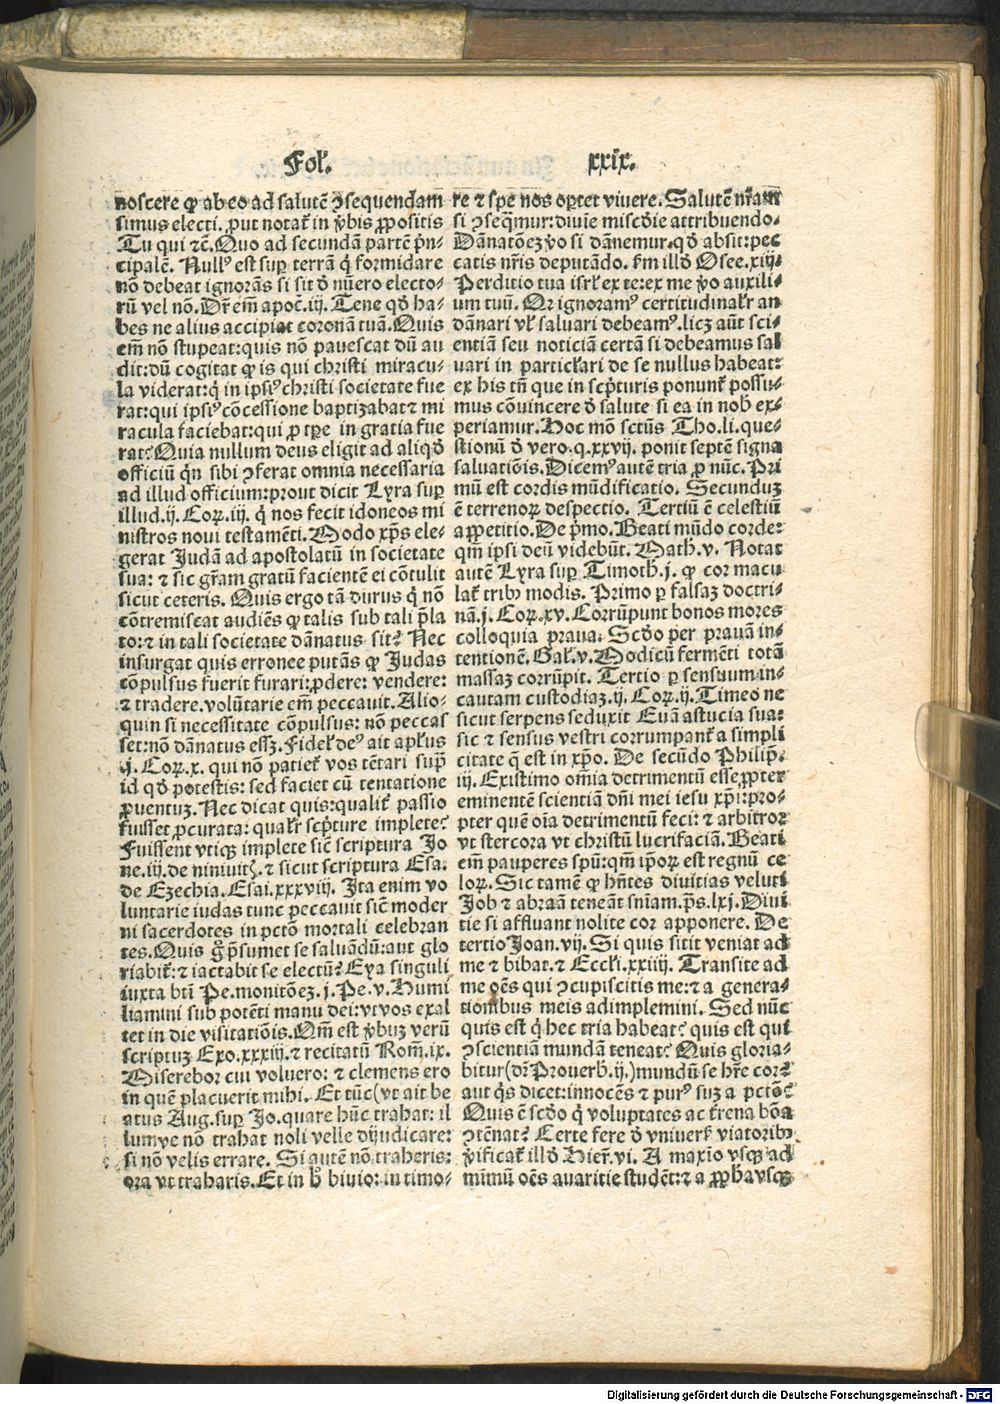 Fol̉. xxix.
noscere ꝙ ab eo ad salutē ꝯsequendam
simus electi. ꝓut notat̉ in v̓bis ꝓpositis
Tu qui ⁊c̄. Quo ad secundā partē p̄n-
cipalē. Nullꝰ est suꝑ terrā q̇ formidare
nō debeat ignorās si sit d̓ nūero electo-
rū vel nō. Dr̄ em̄ apoc̄. iij. Tene qd̓ ha-
bes ne alius accipiat coronā tuā. Quis
em̄ nō stupeat: quis nō pauescat dū au
dit: dū cogitat ꝙ is qui christi miracu-
la viderat: q̇ in ipsiꝰ christi societate fue
rat: qui ipsiꝰ cōcessione baptizabat ⁊ mi
racula faciebat: qui ꝓ tꝑe in gratia fue
rat? Quia nullum deus eligit ad aliqd̓
officiū qn̄ sibi ꝯferat omnia necessaria
ad illud officium: prout dicit Lyra suꝑ
illud. ij. Coꝝ. iij. q̇ nos fecit idoneos mi
nistros noui testamēti. Modo xp̄s ele-
gerat Judā ad apostolatū in societate
sua: ⁊ sic gr̄am gratū facientē ei cōtulit
sicut ceteris. Quis ergo tā durus q̇ nō
cōtremiscat audiēs ꝙ talis sub tali p̄la
to: ⁊ in tali societate dānatus sit? Nec
insurgat quis erronee putās ꝙ Judas
cōpulsus fuerit furari: ꝓdere: vendere:
⁊ tradere. volūtarie em̄ peccauit. Alio-
quin si necessitate cōpulsus: nō peccas
set: nō dānatus essꝫ. Fidel̓ deꝰ ait apl̓us
.j. Coꝝ. x. qui nō patiet̉ vos tētari supra
id qd̓ potestis: sed faciet cū tentatione
ꝓuentuꝫ. Nec dicat quis: qualit̉ passio
fuisset ꝓcurata: qual̓r scp̄ture implete?
Fuissent vtiqꝫ implete sic̄ scriptura Jo
ne. iij. de niniuit̉. ⁊ sicut scriptura Esa.
de Ezechia. Esai. xxxviij. Ita enim vo
luntarie iudas tunc peccauit sic̄ moder
ni sacerdotes in pctō mortali celebran
tes. Quis g̊ p̄sumet se saluādū: aut glo
riabit̉: ⁊ iactabit se electū? Eya singuli
iuxta bt̄i Pe. monitōeꝫ. j. Pe. v. Humi
liamini sub potēti manu dei: vt vos exal
tet in die visitatiōis. Qm̄ est v̓buꝫ verū
scriptuꝫ Exo. xxxiij. ⁊ recitatū Rom̄. ix.
Miserebor cui voluero: ⁊ clemens ero
in quē placuerit mihi. Et tūc (vt ait be
atus Aug. suꝑ Jo. quare hūc trahat: il
lumve nō trahat noli velle dijudicare:
si nō velis errare. Si autē nō traheris:
ora vt traharis. Et in h̓ biuio: in timo-
re ⁊ spe nos oꝑtet viuere. Salutē nr̄am
si ꝯseq̄mur: diuīe miscd̓ie attribuendo.
Dānatōeꝫ v̓o si dānemur. qd̓ absit: pec
catis nr̄is deputādo. ẜm illd̓ Osee. xiij.
Perditio tua isrl̓ ex te: ex me v̓o auxili-
um tuū. Qr ignoramꝰ certitudinal̓r an
dānari vl̓ saluari debeamꝰ. licꝫ aūt sci-
entiā seu noticiā certā si debeamus sal
uari in particl̓ari de se nullus habeat:
ex his tn̄ que in scp̄turis ponunt̉ possu-
mus cōuincere d̓ salute si ea in nob̓ ex-
periamur. Hoc mō sctūs Tho. li. que-
stionū d̓ vero. q. xxvij. ponit septē signa
saluatiōis. Dicemꝰ autē tria ꝓ nūc. Pri
mū est cordis mūdificatio. Secunduꝫ
ē terrenoꝝ despectio. Tertiū ē celestiū
appetitio. De p̄mo. Beati mūdo corde:
qm̄ ipsi deū videbūt. Math̓. v. Notat
autē Lyra suꝑ Timoth̓. j. ꝙ cor macu
lat̉ tribꝰ modis. Primo ꝑ falsaꝫ doctri-
nā. j. Coꝝ. xv. Corrūpunt bonos mores
colloquia praua. Scd̓o per prauā in-
tentionē. Gal̓. v. Modicū fermēti totā
massaꝫ corrūpit. Tertio ꝑ sensuum in-
cautam custodiaꝫ. ij. Coꝝ. ij. Timeo ne
sicut serpens seduxit Euā astucia sua:
sic ⁊ sensus vestri corrumpant̉ a simpli
citate q̄ est in xp̄o. De secūdo Philip̄.
iij. Existimo om̄ia detrimentū esse ꝓpter
eminentē scientiā dn̄i mei iesu xp̄i: pro-
pter quē oīa detrimentū feci: ⁊ arbitror
vt stercora vt christū lucrifaciā. Beati
em̄ pauperes spū: qm̄ ip̄oꝝ est regnū ce
loꝝ. Sic tamē ꝙ hn̄tes diuitias veluti
Job ⁊ abraā teneāt sn̄iam. p̄s. lxj. Diui
tie si affluant nolite cor apponere. De
tertio Joan. vij. Si quis sitit veniat ad
me ⁊ bibat. ⁊ Eccl̓i. xxiiij. Transite ad
me oēs qui ꝯcupiscitis me: ⁊ a genera-
tionibus meis adimplemini. Sed nūc
quis est q̇ hec tria habeat? quis est qui
ꝯscientiā mundā teneat? Quis gloria-
bitur (dr̄ Prouerb. ij.) mundū se hr̄e cor?
aut q̇s dicet: innocēs ⁊ purꝰ suꝫ a pctō?
Quis ē scd̓o q̇ voluptates ac t̓rena bōa
ꝯtēnat? Certe fere d̓ vniuers̓ viatoribꝰ
v̓ificat̉ illd̓ Hier̄. vi. A maxīo vsqꝫ ad
mīmū oēs auaritie studēt: ⁊ a ꝓph̓a vsqꝫ
Digitalisierung gefördert durch die Deutsche Forschungsgemeinschaft - DFG